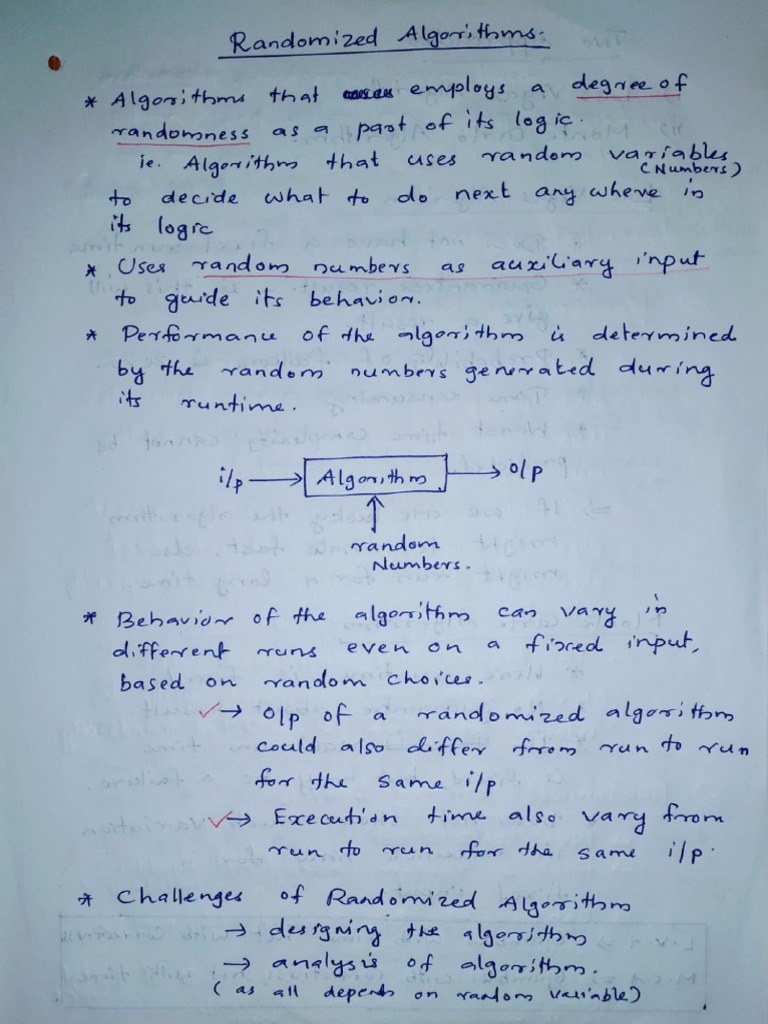 Randomized Algorithms.
* Algorithms that employs a degree of
randomness as a part of its logic.
ie. Algorithm that uses random variables
(Numbers)
to decide what to do next any where in
its logic
* Uses random numbers as auxiliary input
to guide its behavior.
* Performance of the algorithm is determined
by the random numbers generated during
its runtime.
i/p → Algorithm → o/p
↑
random
Numbers.
* Behavior of the algorithm can vary in
different runs even on a fixed input,
based on random choices.
✓→ O/p of a randomized algorithm
could also differ from run to run
for the same i/p
✓→ Execution time also vary from
run to run for the same i/p.
* Challenges of Randomized Algorithm
→ designing the algorithm
→ analysis of algorithm.
(as all depends on random variable)